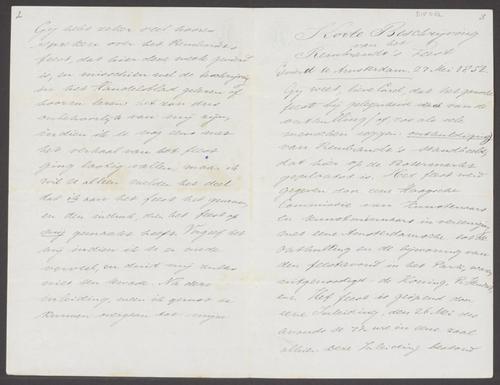 2
Gij hebt zeker veel hooren
spreken over het Rembrandts
feest, dat hier deze week gevierd
is, en misschien wel de beschrijving
in het Handelsblad gelezen of
hooren lezen. Het zou dus
onbehoorlijk van mij zijn,
indien ik u nog eens met
het verhaal van het feest
ging lastig vallen, maar ik
wil u alleen melden het deel
dat ik aan het feest heb genomen
en den indruk, dien het feest op
mij gemaakt heeft. Vergeef het
mij indien ik u er mede
verveel, en duid mij zulks
niet ten kwade. Na deze
inleiding, meen ik gerust te
kunnen overgaan tot mijne
3
Korte Beschrijving
van het
Rembrandt's Feest
te Amsterdam, 27 Mei 1852.
Gij weet, lieve Carl, dat het gevierde
feest bij gelegenheid van de
onthulling (of zoo als vele
menschen zeggen: ontbuldering)
van Rembrandt's standbeeld,
dat hier op de Botermarkt
geplaatst is. Het feest werd
gegeven door eene Haagsche
Commissie van Kunstenaars
en kunstminnaars in vereeniging
met eene Amsterdamsche. Tot de
onthulling en de bijwoning van
den feestavond in het Park, waren
uitgenoodigd de Koning, P. Hendrik
enz. Het feest is geopend door
eene Inleiding, den 26 Mei des
avonds te 7 ure in eene zaal
alleen. Deze Inleiding bestond